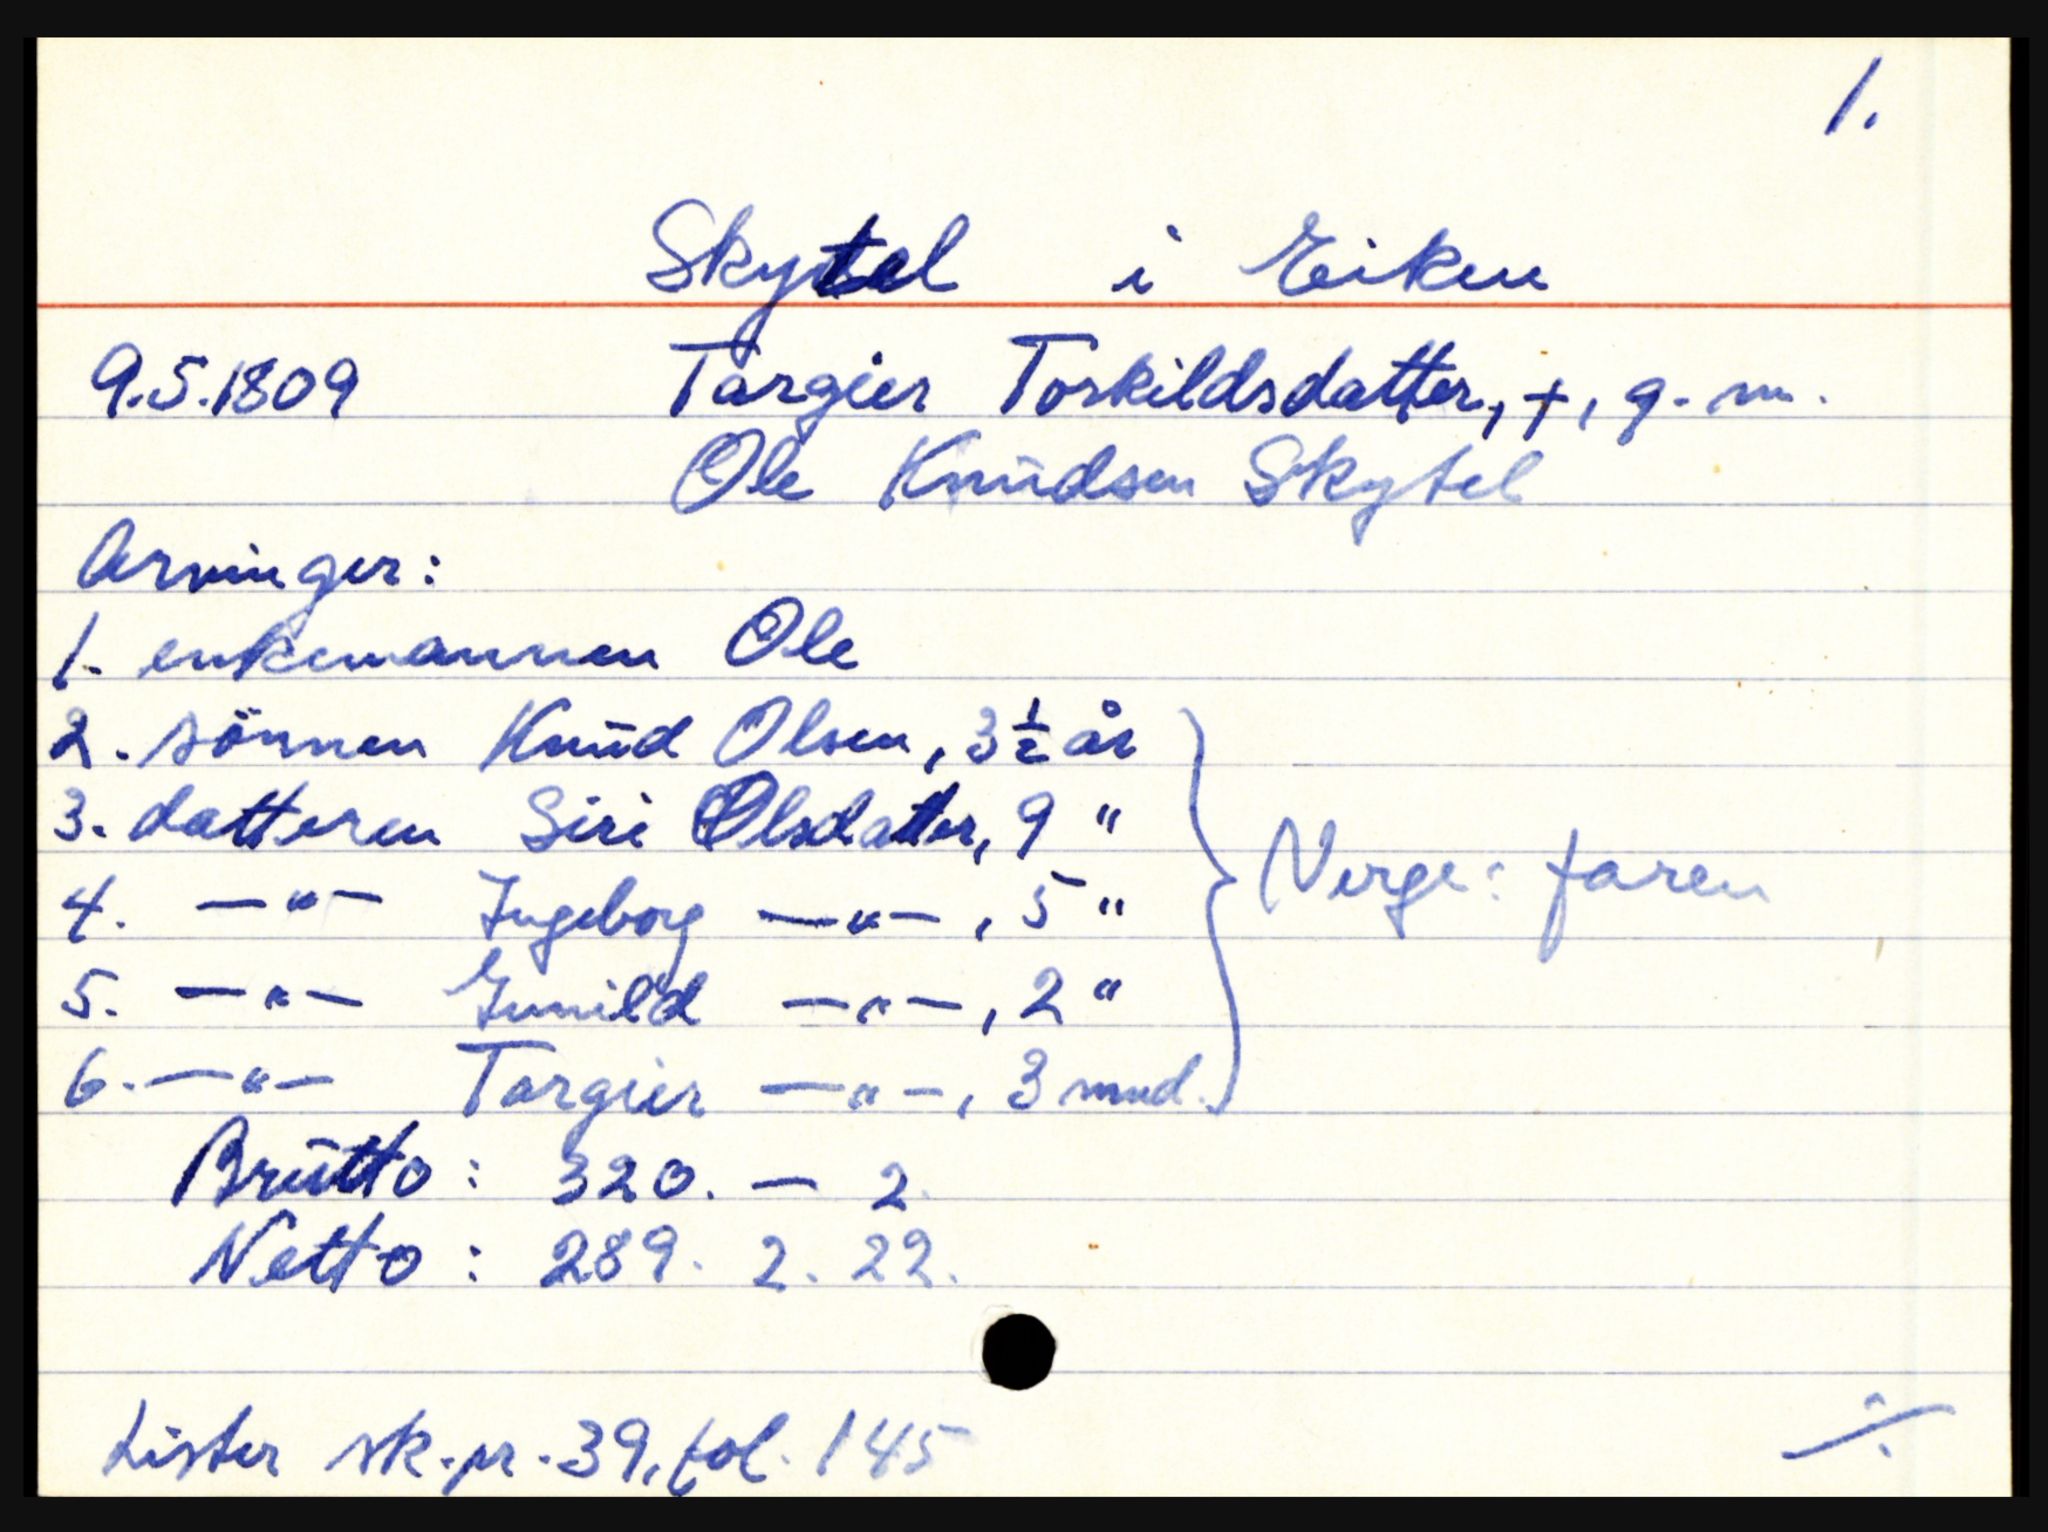 1.
Skytel i Eiken
9.5.1809 Targier Torkildsdatter, +, g. m.
Ole Knudsen Skytel
Arvinger:
1. enkemannen Ole
2. sönnen Knud Olsen, 3 ½ år
3. datteren Siri Olsdatter, 9 "
4. —"— Ingeborg —"—, 5 "
5. —"— Gunild —"—, 2 "
6. —"— Targier —"—, 3 mnd.
Verge: faren
Brutto: 320. — 2.
Netto: 289. 2. 22.
Lister sk. pr. 39, fol. 145
./.